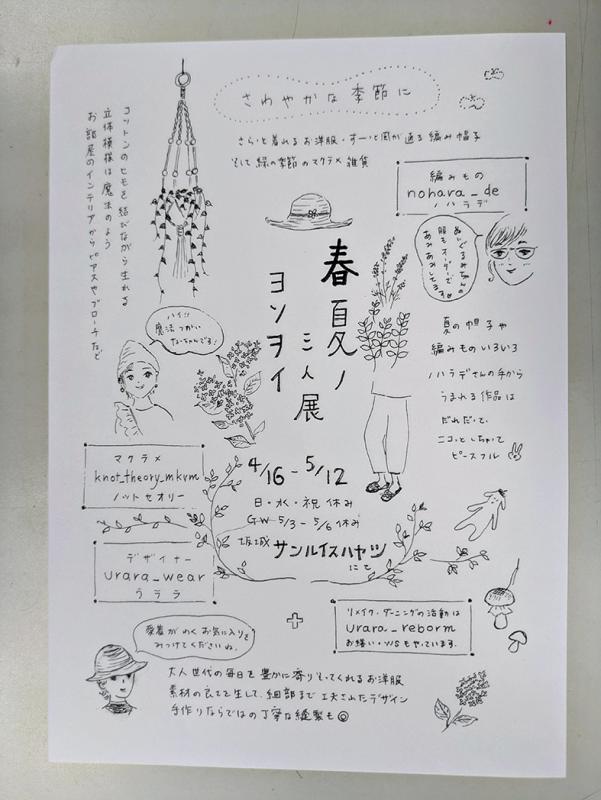 さわやかな季節に
さらっと着れるお洋服・すーっと風が通る編み帽子
そして緑の季節のマクラメ雑貨
コットンのヒモを結びながら生れる
立体模様は魔法のよう
お部屋のインテリアからピアスやブローチなど
編みもの
nohara_de
ノハラデ
ぬいぐるみちゃんの
服もオーダーで
あみあみしてます
春夏ノ
三人展
ヨソヲイ
夏の帽子や
編みものいろいろ
ノハラデさんの手から
うまれる作品は
だれだって、
ニコッとしちゃって
ピースフル
ハイ!!
魔法つかい
なーちゃんです!
マクラメ
knot_theory_mkvm
ノットセオリー
4/16-5/12
日・水・祝休み
GW 5/3-5/6休み
坂城 サンルイスハヤツ
にて
デザイナー
urara_wear
うララ
リメイク・ダーニングの活動は
urara_reborm
お繕い・WSもやっています.
愛着がわくお気に入りを
みつけてくださいね.
大人世代の毎日を豊かに寄りそってくれるお洋服
素材の良さを生して、細部まで工夫されたデザイン
手作りならではの丁寧な縫製も◎